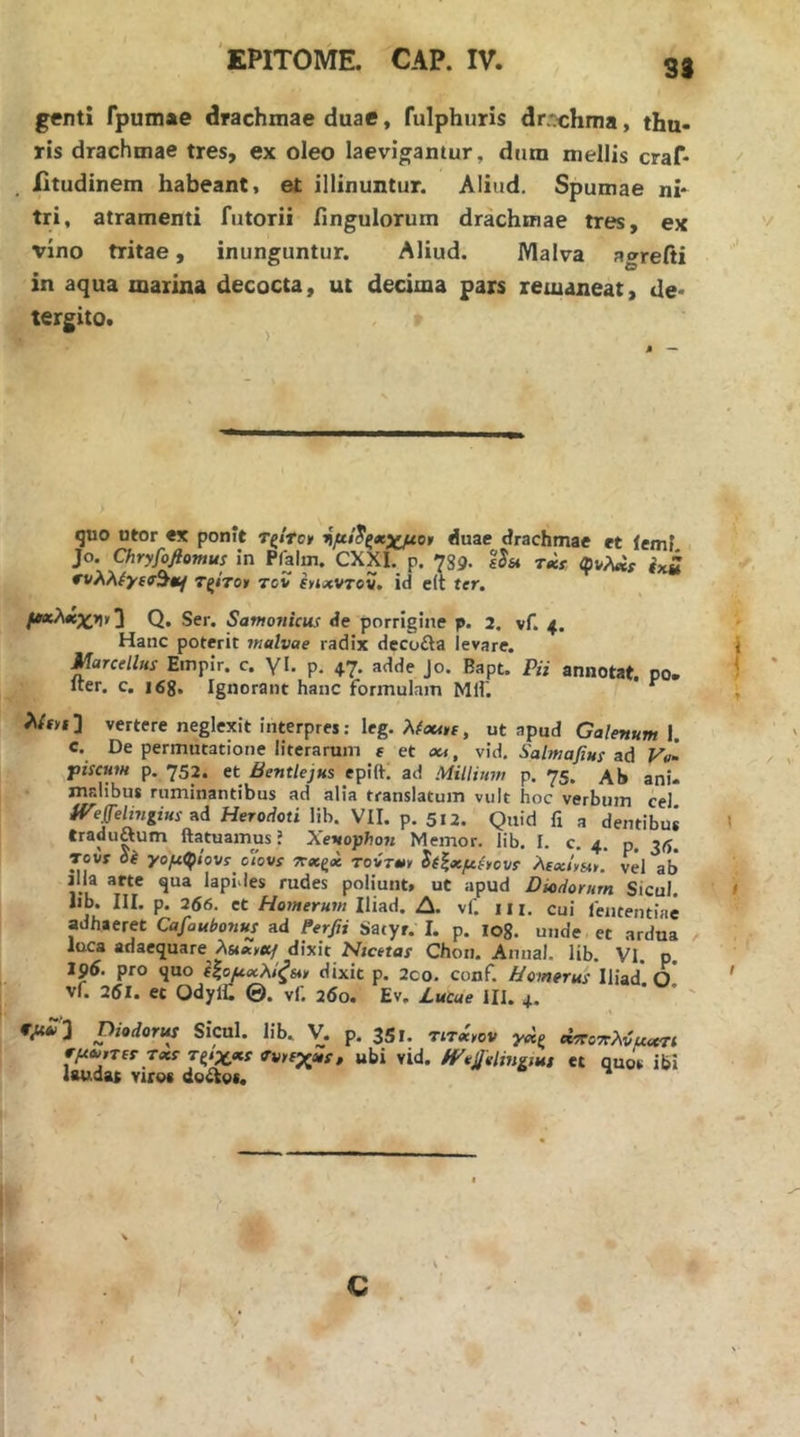 EPITOME. CAP. IV. 33
genti ſpumae drachmae duae, ſulphuris drachma, thu-
ris drachmae tres, ex oleo laevigantur, dum mellis craſ-
ſitudinem habeant, et illinuntur. Aliud. Spumae ni-
tri, atramenti ſutorii ſingulorum drachmae tres, ex
vino tritae, inunguntur. Aliud. Malva agreſti
in aqua marina decocta, ut decima pars remaneat, de-
tergito.
quo utor ex ponit τρίτον ἡμίδραχμον duae drachmae et ſemi.
Jo. Chryſoſtomus in Pſalm. CXXI. p. 789. ἐδει τὰς φυλὰς ἐκεῖ
συλλέγεσθαι τρίτον τοῦ ἐνιαυτοῦ. id eſt ter.
μαλάχην] Q. Ser. Samonicus de porrigine p. 2. vſ. 4.
Hanc poterit malvae radix decocta levare.
Marcellus Empir. c. VI. p. 47. adde Jo. Bapt. Pii annotat. po-
ſter. c. 168. Ignorant hanc formulam Mſſ.
λένε] vertere neglexit interpres: leg. λέαινε, ut apud Galenum l.
c. De permutatione literarum ε et αι, vid. Salmaſius ad Vo-
piscum p. 752. et Bentlejus epiſt. ad Millium p. 75. Ab ani-
malibus ruminantibus ad alia translatum vult hoc verbum cel.
Weſſelingius ad Herodoti lib. VII. p. 512. Quid ſi a dentibus
traductum ſtatuamus? Xenophon Memor. lib. I. c. 4. p. 36.
τοὺς δὲ γομφίους οἵους παρὰ τούτων δεξαμένους λεαίνειν. vel ab
illa arte qua lapides rudes poliunt, ut apud Diodorum Sicul.
lib. III. p. 266. et Homerum Iliad. Δ. vſ. 111. cui ſententiae
adhaeret Caſaubonus ad Perſii Satyr. I. p. 108. unde et ardua
loca adaequare λειᾶναι dixit Nicetas Chon. Annal. lib. VI. p.
196. pro quo ἐξομαλίζειν dixit p. 200. conf. Homerus Iliad. O.
vſ. 261. et Odyſſ. Θ. vſ. 260. Ev. Lucae III. 4.
σμῶ] Diodorus Sicul. lib. V. p. 351. τιτάνου γὰρ ἀποπλύματι
σμῶντες τὰς τρίχας συνεχῶς, ubi vid. Weſſelingius et quos ibi
laudat viros doctos.
C